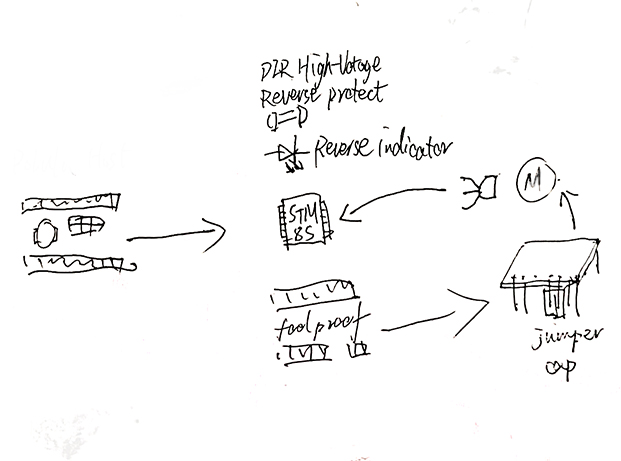 DIR High-Votage
Reverse protect
Reverse indicator
M
STM
8S
fool proof
jumper
cap